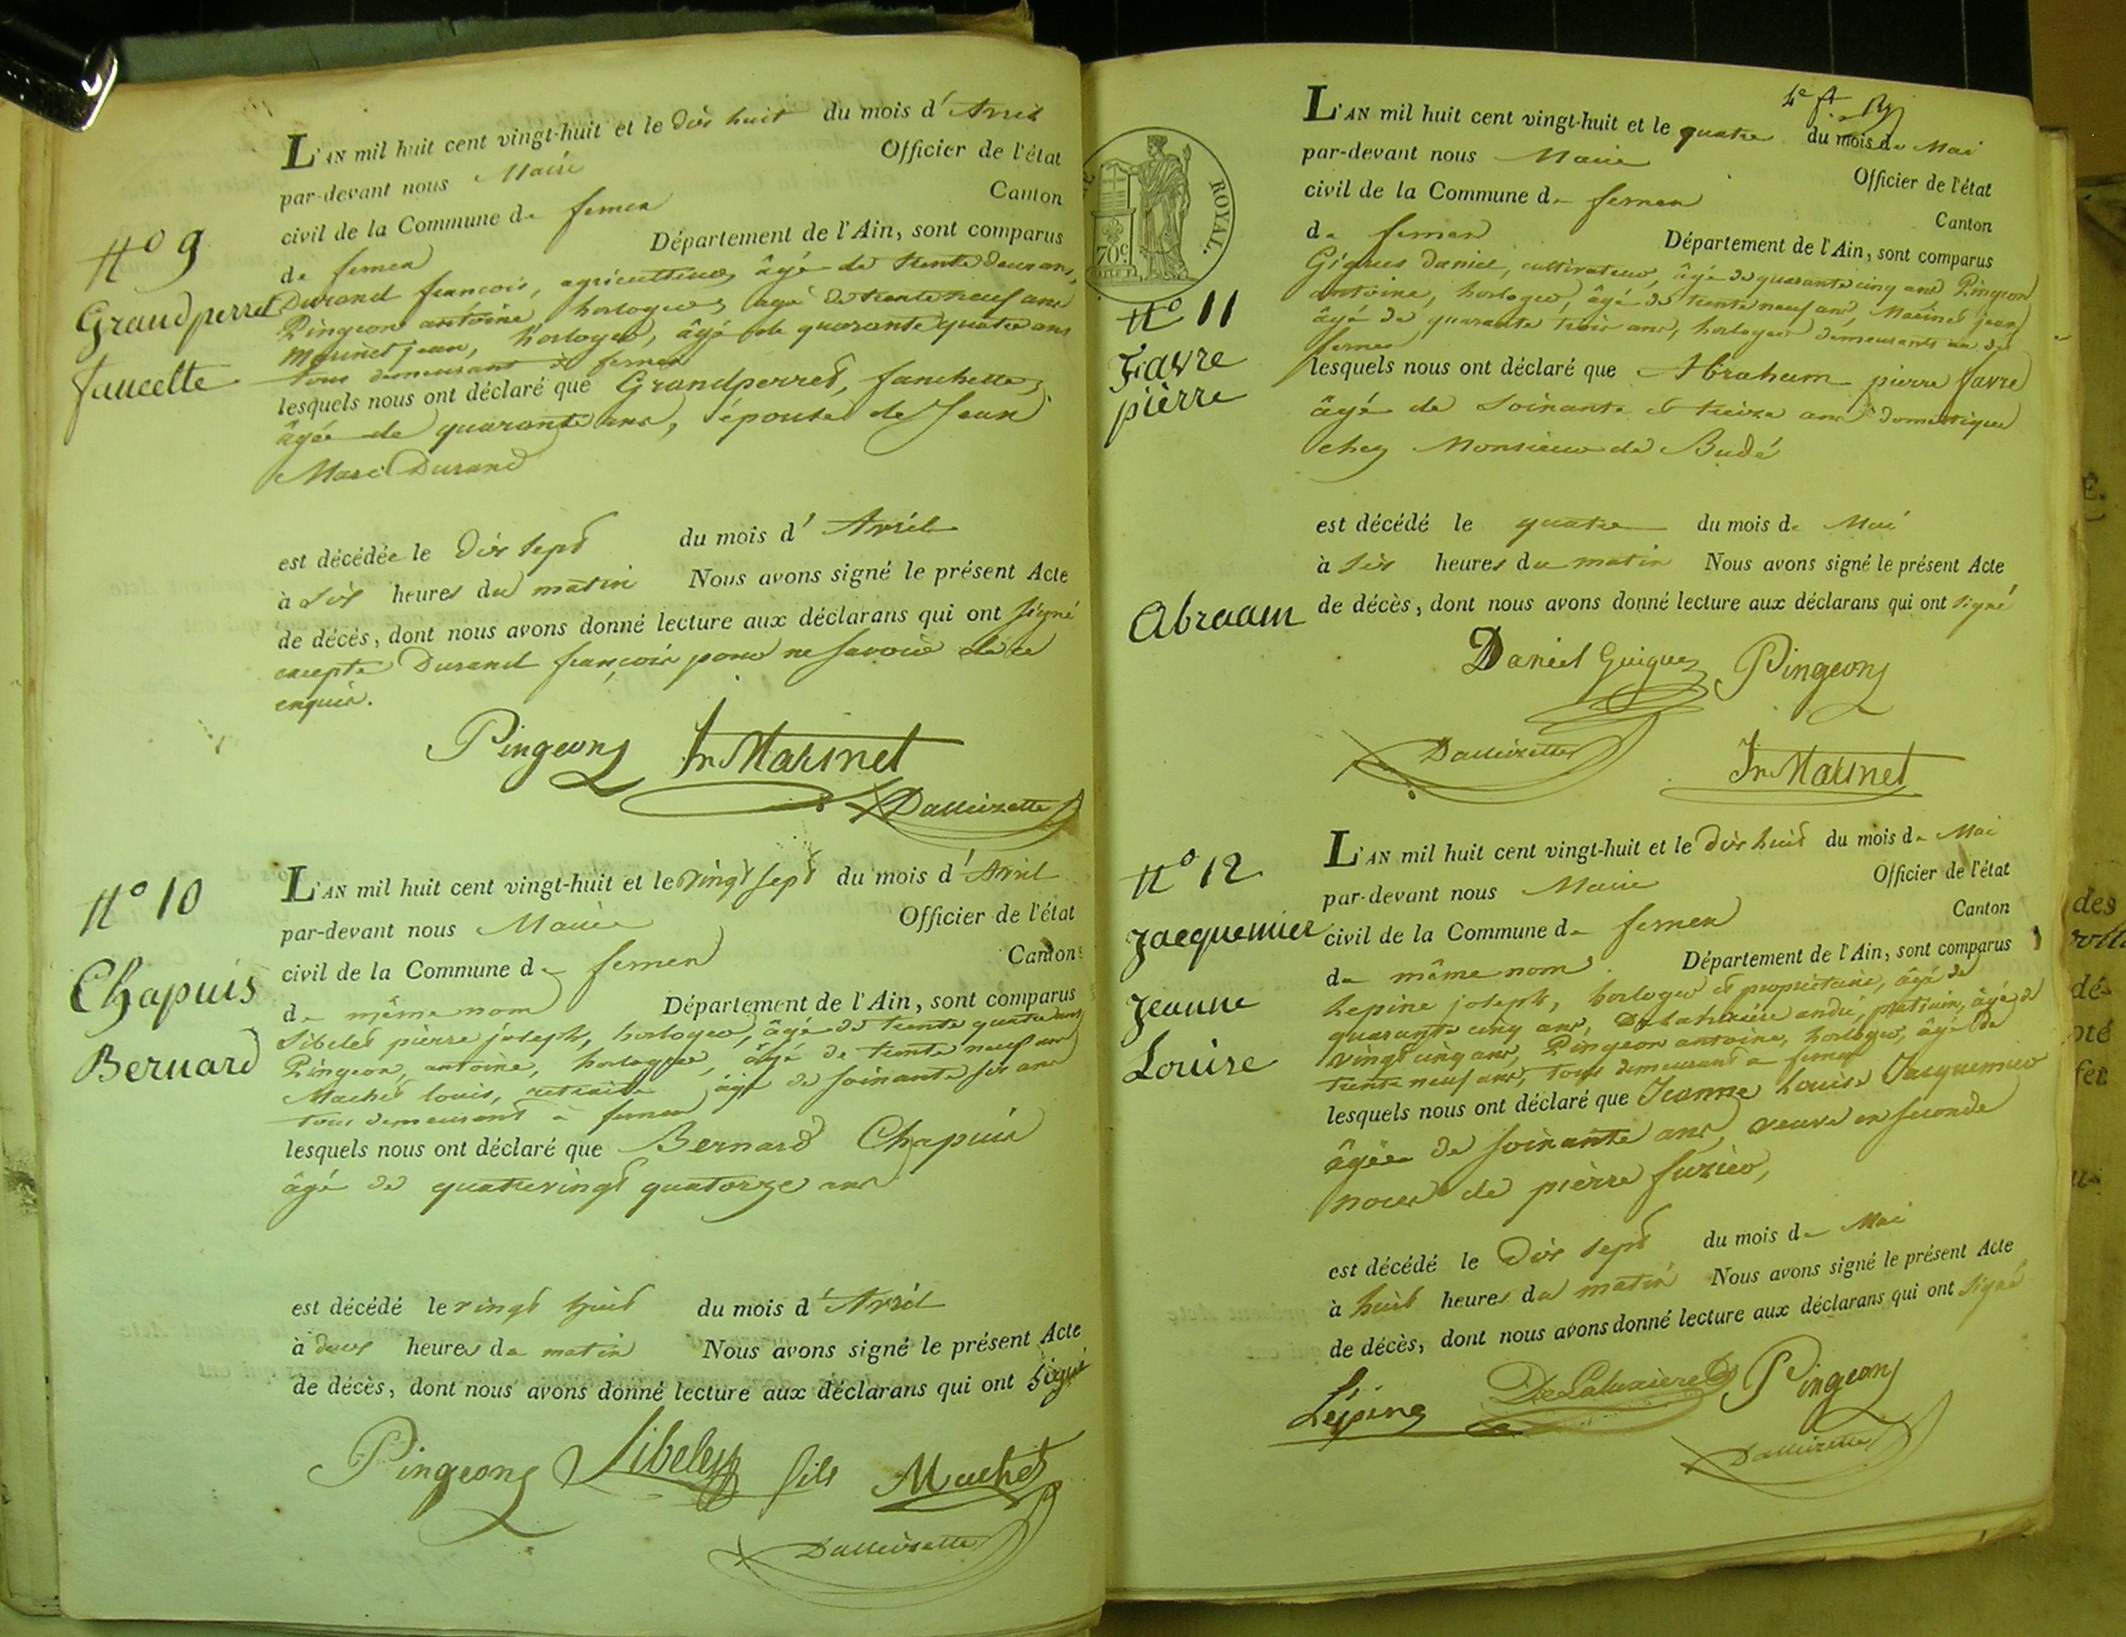 L'AN mil huit cent vingt-huit et le dix huit du mois d' Avril
par-devant nous Maire Officier de l'état
civil de la Commune de fernex Canton
de fernex Département de l'Ain, sont comparus
Durand françois, agriculteur, âgé de trente deux ans,
Pingeon antoine, horloger, agé de trente neuf ans
Marinet jean, horloger, âgé de quarante quatre ans
tous demeurant à fernex
lesquels nous ont déclaré que Grandperret, fanchette,
âgée de quarante ans, épouse de Jean
Marc Durand
est décédée le dix sept du mois d' Avril
à six heures du matin Nous avons signé le présent Acte
de décès, dont nous avons donné lecture aux déclarans qui ont signé
excepté Durand françois pour ne savoir de ce
enquis.
Pingeon Jn Marinet
Dalloizette
N° 9
Grandperret
fancette
L'AN mil huit cent vingt-huit et le vingt sept du mois d' Avril
par-devant nous Maire Officier de l'état
civil de la Commune de fernex Canton
de même nom Département de l'Ain, sont comparus
Sibelet pierre joseph, horloger, âgé de trente quatre ans
Pingeon, antoine, horloger, âgé de trente neuf ans
Machet louis, retraité âgé de soixante six ans
tous demeurant à fernex
lesquels nous ont déclaré que Bernard Chapuis
âgé de quatrevingt quatorze ans
est décédé le vingt huit du mois d' Avril
à deux heures de matin Nous avons signé le présent Acte
de décès, dont nous avons donné lecture aux déclarans qui ont signé
Pingeon Sibelet fils Machet
Dalloizette
N° 10
Chapuis
Bernard
ROYAL.
70c
L'AN mil huit cent vingt-huit et le quatre du mois de Mai
par-devant nous Maire Officier de l'état
civil de la Commune de fernex Canton
de fernex Département de l'Ain, sont comparus
Gigues Daniel, cultivateur, âgé de quarante cinq ans Pingeon
antoine, horloger, âgé de trente neuf ans, Marinet jean
âgé de quarante trois ans, horloger demeurants au dit
fernex
lesquels nous ont déclaré que Abraham pierre favre
âgé de soixante et treize ans domestique
chez Monsieur de Budé
est décédé le quatre du mois de Mai
à six heures du matin Nous avons signé le présent Acte
de décès, dont nous avons donné lecture aux déclarans qui ont signé
Daniel Guigues Pingeon
Dalloizette Jn Marinet
N° 11
Favre
pierre
Abraam
L'AN mil huit cent vingt-huit et le dix huit du mois de Mai
par-devant nous Maire Officier de l'état
civil de la Commune de fernex Canton
de même nom Département de l'Ain, sont comparus
Lepine joseph, horloger et propriétaire, âgé de
quarante cinq ans, andré, praticien, âgé de
vingt cinq ans, Pingeon antoine, horloger, âgé de
trente neuf ans, tous demeurant a fernex
lesquels nous ont déclaré que Jeanne Louise Jacquemier
âgée de soixante ans veuve en seconde
noces de pierre fuzier,
est décédé le dix sept du mois de Mai
à huit heures du matin Nous avons signé le présent Acte
de décès, dont nous avons donné lecture aux déclarans qui ont signé
Lépine Pingeon
Dalloizette
N° 12
Jacquemier
Jeanne
Louise